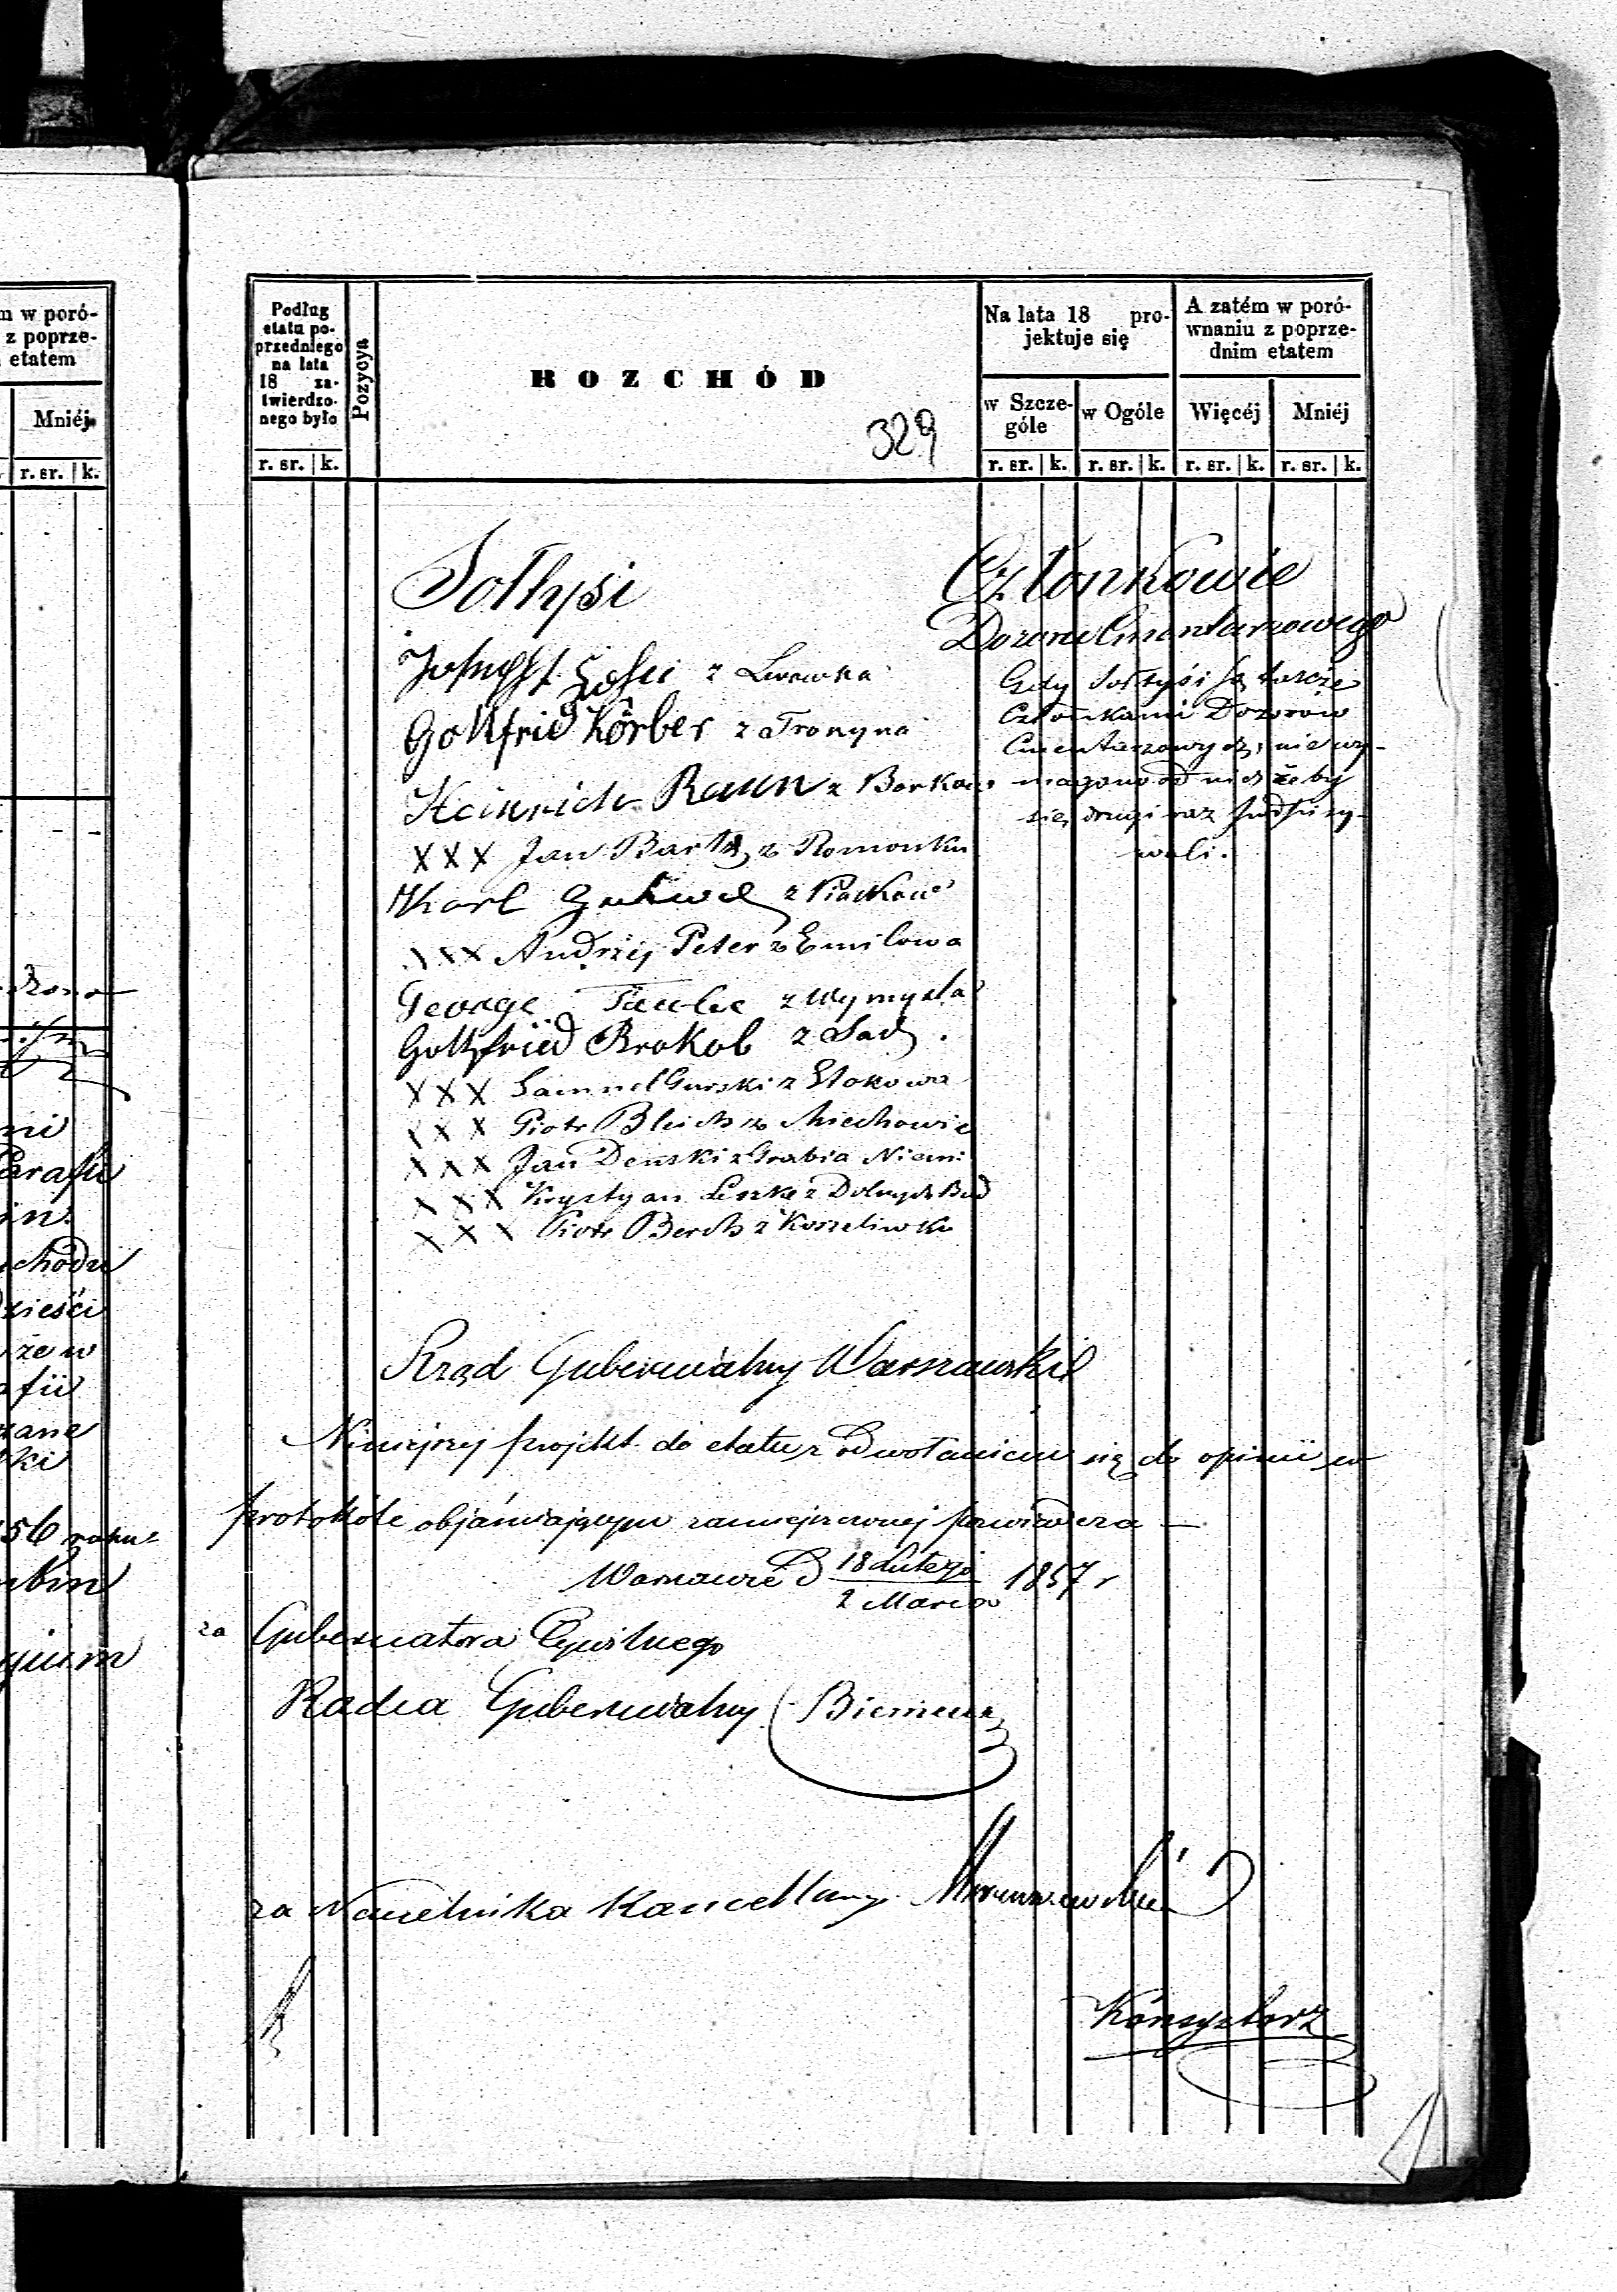 m w poró-
z poprze-
etatem
Mniéj
r. sr. k.
Podług
etatu po-
przedniego
na lata
18 za-
twierdzo-
nego było
r. sr. k.
Pozycya
ROZCHÓD
329
Na lata 18 pro-
jektuje się
w Szcze-
góle
w Ogóle
r. sr. k. r. sr. k.
A zatém w poró-
wnaniu z poprze-
dnim etatem
Więcéj
Mniéj
r. sr. k. r. sr. k.
Sołtysi
z Lwowka
Gottfried Körber z Tronyna
Heinrich Raun z Borkow
XXX Jan Bartz z Romonku
Karl z Piaskow
XXX Andrzéj Peter z Emilowa
George Taube z Wymysla
Gottfried Brokob z Sad.
XXX Samuel Gurski z
XXX Piotr Bleich z Miechowic
XXX Jan Denski z Grabia Niem
XXX Krystyan Leszke z Dolnych Bud
XXX Piotr Berch z Koszeliwki
Członkowie
Dozoru Cmentarzowego
Gdy Sołtysi są także
Członkami Dozorów
Cmentarzowych, nie wy-
magano od nich żeby
się drugi raz podpisy-
wali.
Rząd Gubernialny Warszawski
Niniejszy projekt do etatu z odwołaniem się do opinii w
protokóle objaśniającym zamieszczonej poświadcza —
Warszawie d 18 Lutego
2 Marca 1857 r
za Gubernatora Cywilnego
Radca Gubernialny
za Naczelnika Kancellaryi
Konsystorz
ni
Parafii
in.
chodu
dzieści
że w
afii
zane
ki
56 roku